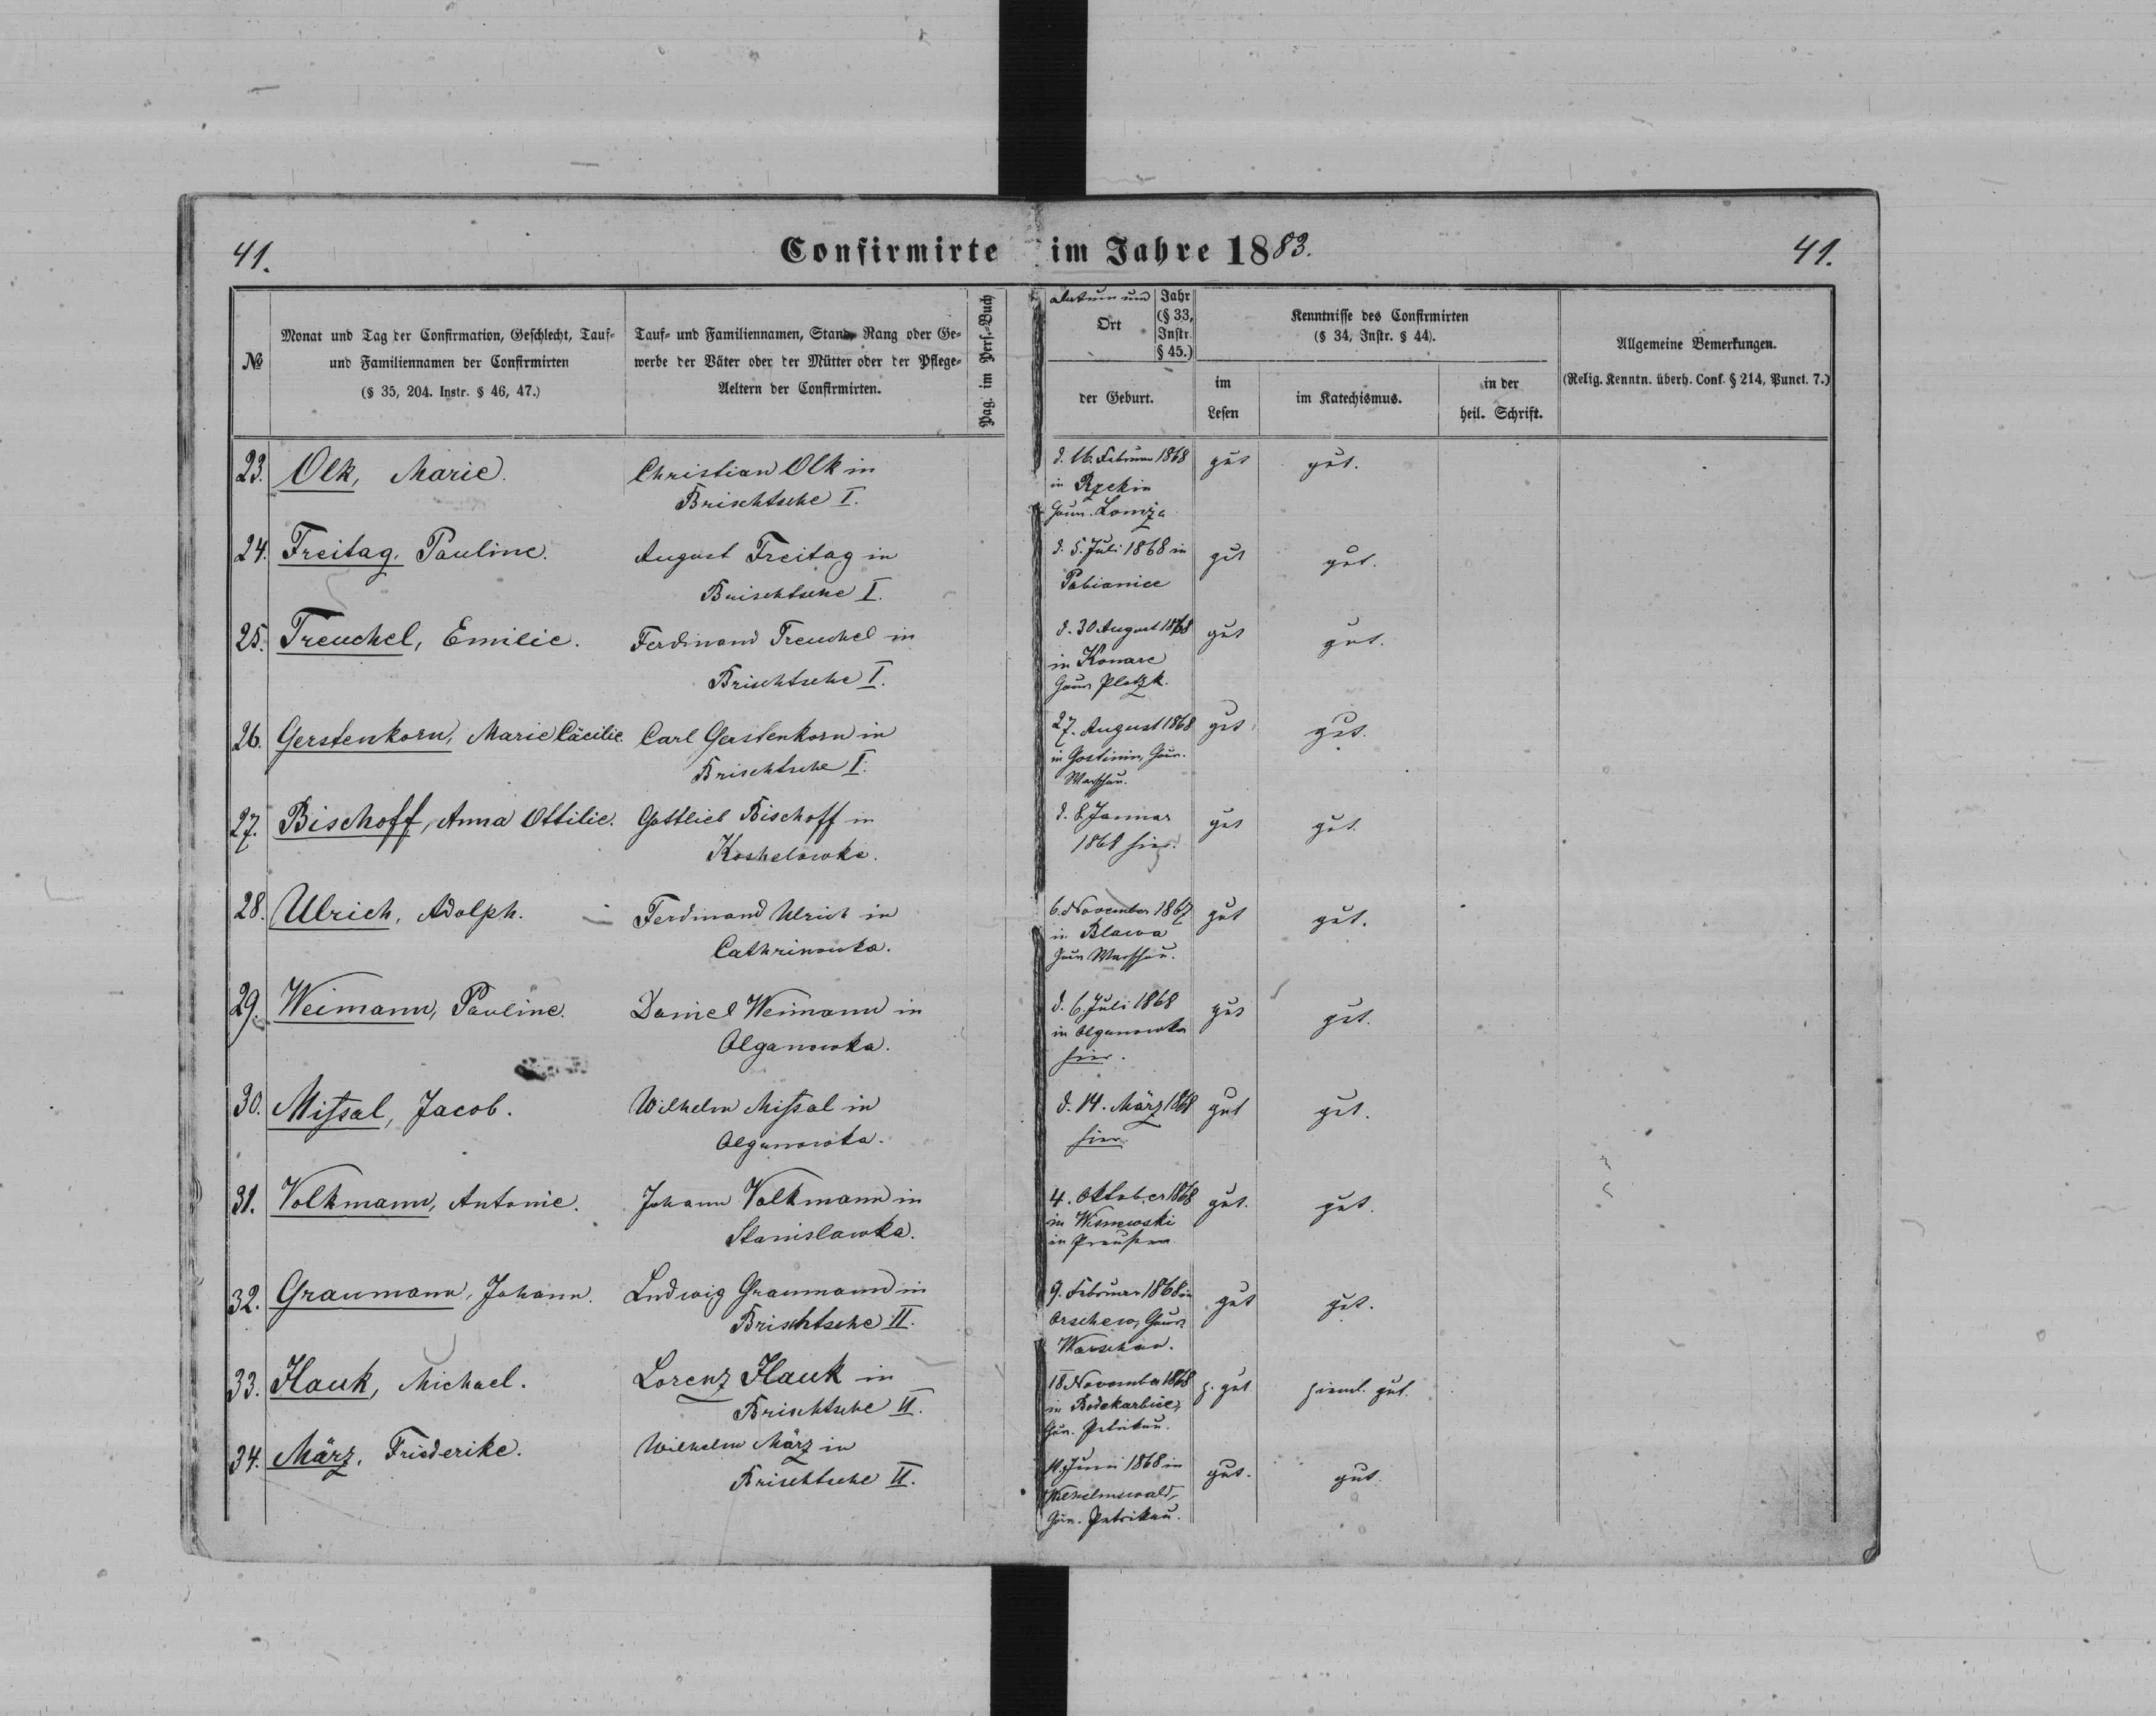 41.
Confirmirte im Jahre 1883.
41.
№
Monat und Tag der Confirmation, Geschlecht, Tauf-
und Familiennamen der Confirmirten
(§ 35, 204. Instr. § 46, 47.)
Tauf- und Familiennamen, Stand, Rang oder Ge-
werbe der Väter oder der Mütter oder der Pflege-
Aeltern der Confirmirten.
Pag. im Pers.-Buch
datum und
Ort
Jahr
(§ 33,
Instr.
§ 45.)
der Geburt.
Kenntnisse des Confirmirten
(§ 34, Instr. § 44).
im
Lesen
im Katechismus.
in der
heil. Schrift.
Allgemeine Bemerkungen.
(Relig. Kenntn. überh. Conf. § 214, Punct. 7.)
23. Olk, Marie. Christian Olk in d. 16. Februar 1868 gut gut.
Brischtsche I. in Rzekin
Gouv. Lomza
24. Freitag, Pauline. August Freitag in d. 5. Juli 1868 in gut gut.
Brischtsche I. Pabianice
25. Treuchel, Emilie. Ferdinand Treuchel in d. 30 August 1868 gut gut.
Brischtsche I. in Konare
Gouv Plotzk.
26. Gerstenkorn, Marie Cäcilie. Carl Gerstenkorn in 27. August 1868 gut gut.
Brischtsche I. in Gostinin, Gouv.
Warschau.
27. Bischoff, Anna Ottilie. Gottlieb Bischoff in d. 8. Januar gut gut.
Koshelowka. 1868 hier.
28. Ulrich, Adolph. Ferdinand Ulrich in 6. November 1867 gut gut.
Cathrinowka. in Blawa
Gouv Warschau.
29. Weimann, Pauline. Daniel Weimann in d. 6. Juli 1868 gut gut.
Olganowka. in Olganowka
hier.
30. Missal, Jacob. Wilhelm Missal in d. 14. März 1868 gut gut.
Olganowka. hier.
31. Volkmann, Antonie. Johann Volkmann in 4. Oktober 1868 gut. gut.
Stanislawka. in Wisnewski
in Preußen
32. Graumann, Johann. Ludwig Graumann in 9. Februar 1868 in gut gut.
Brischtsche II. Orschew, Gouv.
Warschau.
33. Hauk, Michael. Lorenz Hauk in 18 November 1868 z. gut zieml. gut.
Brischtsche II. in
Gouv. Petrikau.
34. März, Friederike. Wilhelm März in Juni 1868 in gut. gut.
Brischtsche II. Wilhelmswald,
Gouv. Petrikau.